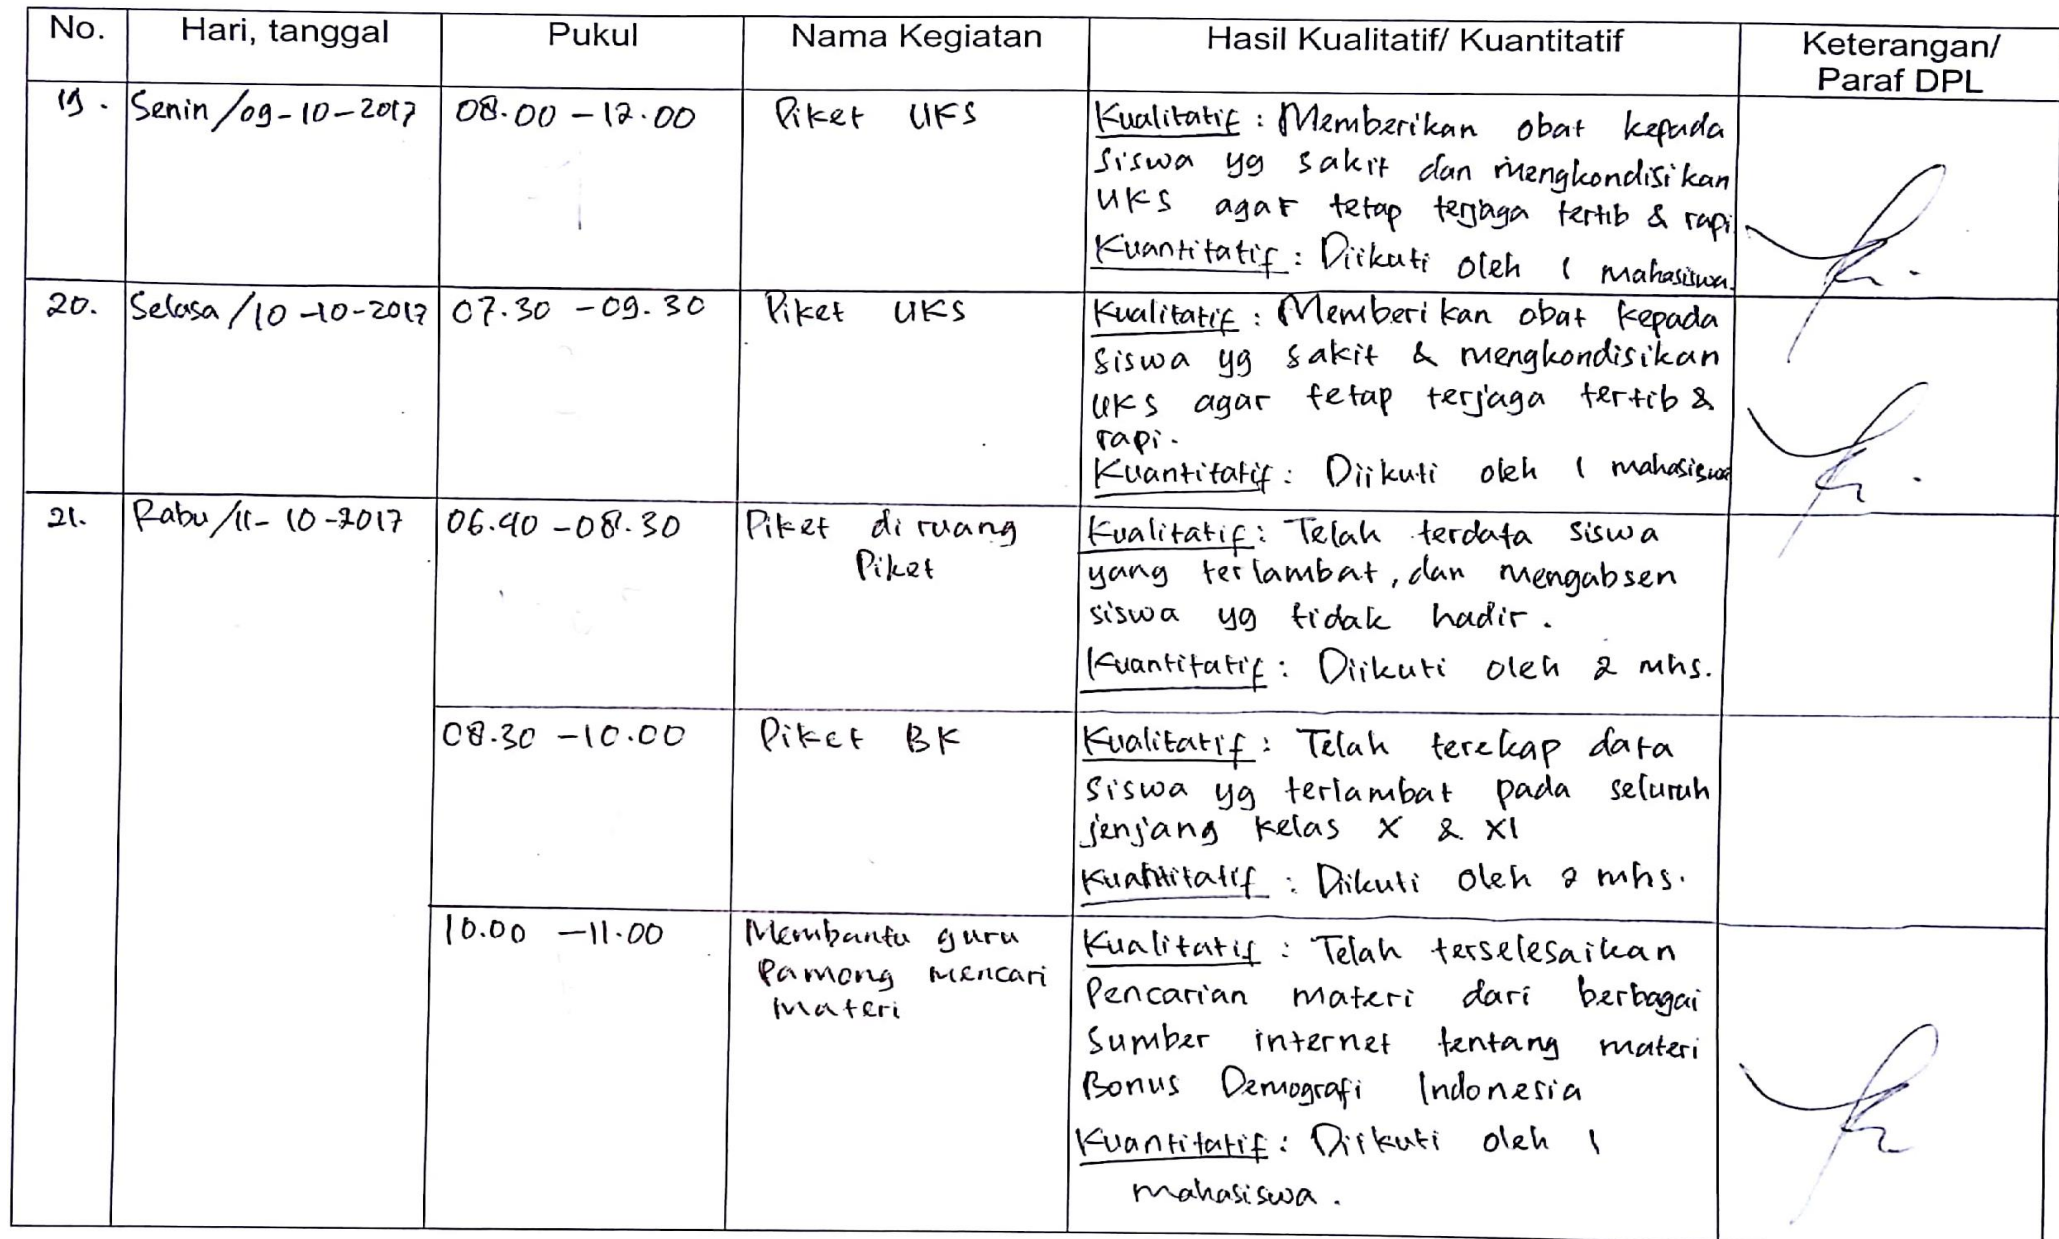 No. Hari, tanggal Pukul Nama Kegiatan Hasil Kualitatif/ Kuantitatif Keterangan/
Paraf DPL
19. Senin /09-10-2017 08.00 - 12.00 Piket UKS Kualitatif : Memberikan obat kepada
siswa yg sakit dan mengkondisikan
UKS agar tetap terjaga tertib & rapi
Kuantitatif : Diikuti oleh 1 mahasiswa.
20. Selasa /10-10-2017 07.30 - 09.30 Piket UKS Kualitatif : Memberikan obat kepada
siswa yg sakit & mengkondisikan
UKS agar tetap terjaga tertib &
rapi.
Kuantitatif : Diikuti oleh 1 mahasiswa
21. Rabu /11-10-2017 06.40 - 08.30 Piket di ruang Kualitatif : Telah terdata siswa
Piket yang terlambat, dan mengabsen
siswa yg tidak hadir.
Kuantitatif : Diikuti oleh 2 mhs.
08.30 - 10.00 Piket BK Kualitatif : Telah terekap data
siswa yg terlambat pada seluruh
jenjang kelas X & XI
Kuantitatif : Diikuti oleh 2 mhs.
10.00 - 11.00 Membantu guru Kualitatif : Telah terselesaikan
Pamong mencari Pencarian materi dari berbagai
materi Sumber internet tentang materi
Bonus Demografi Indonesia
Kuantitatif : Diikuti oleh 1
mahasiswa.